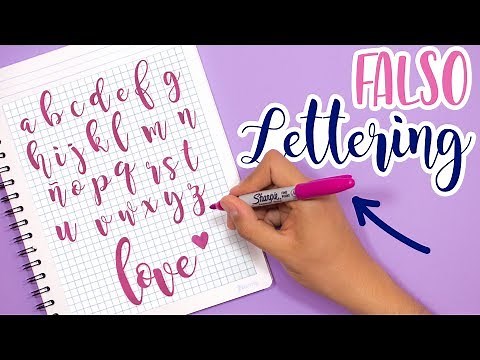 a b c d e f g
h i j k l m n
ñ o p q r s t
u v w x y z
love
FALSO
Lettering
Sharpie